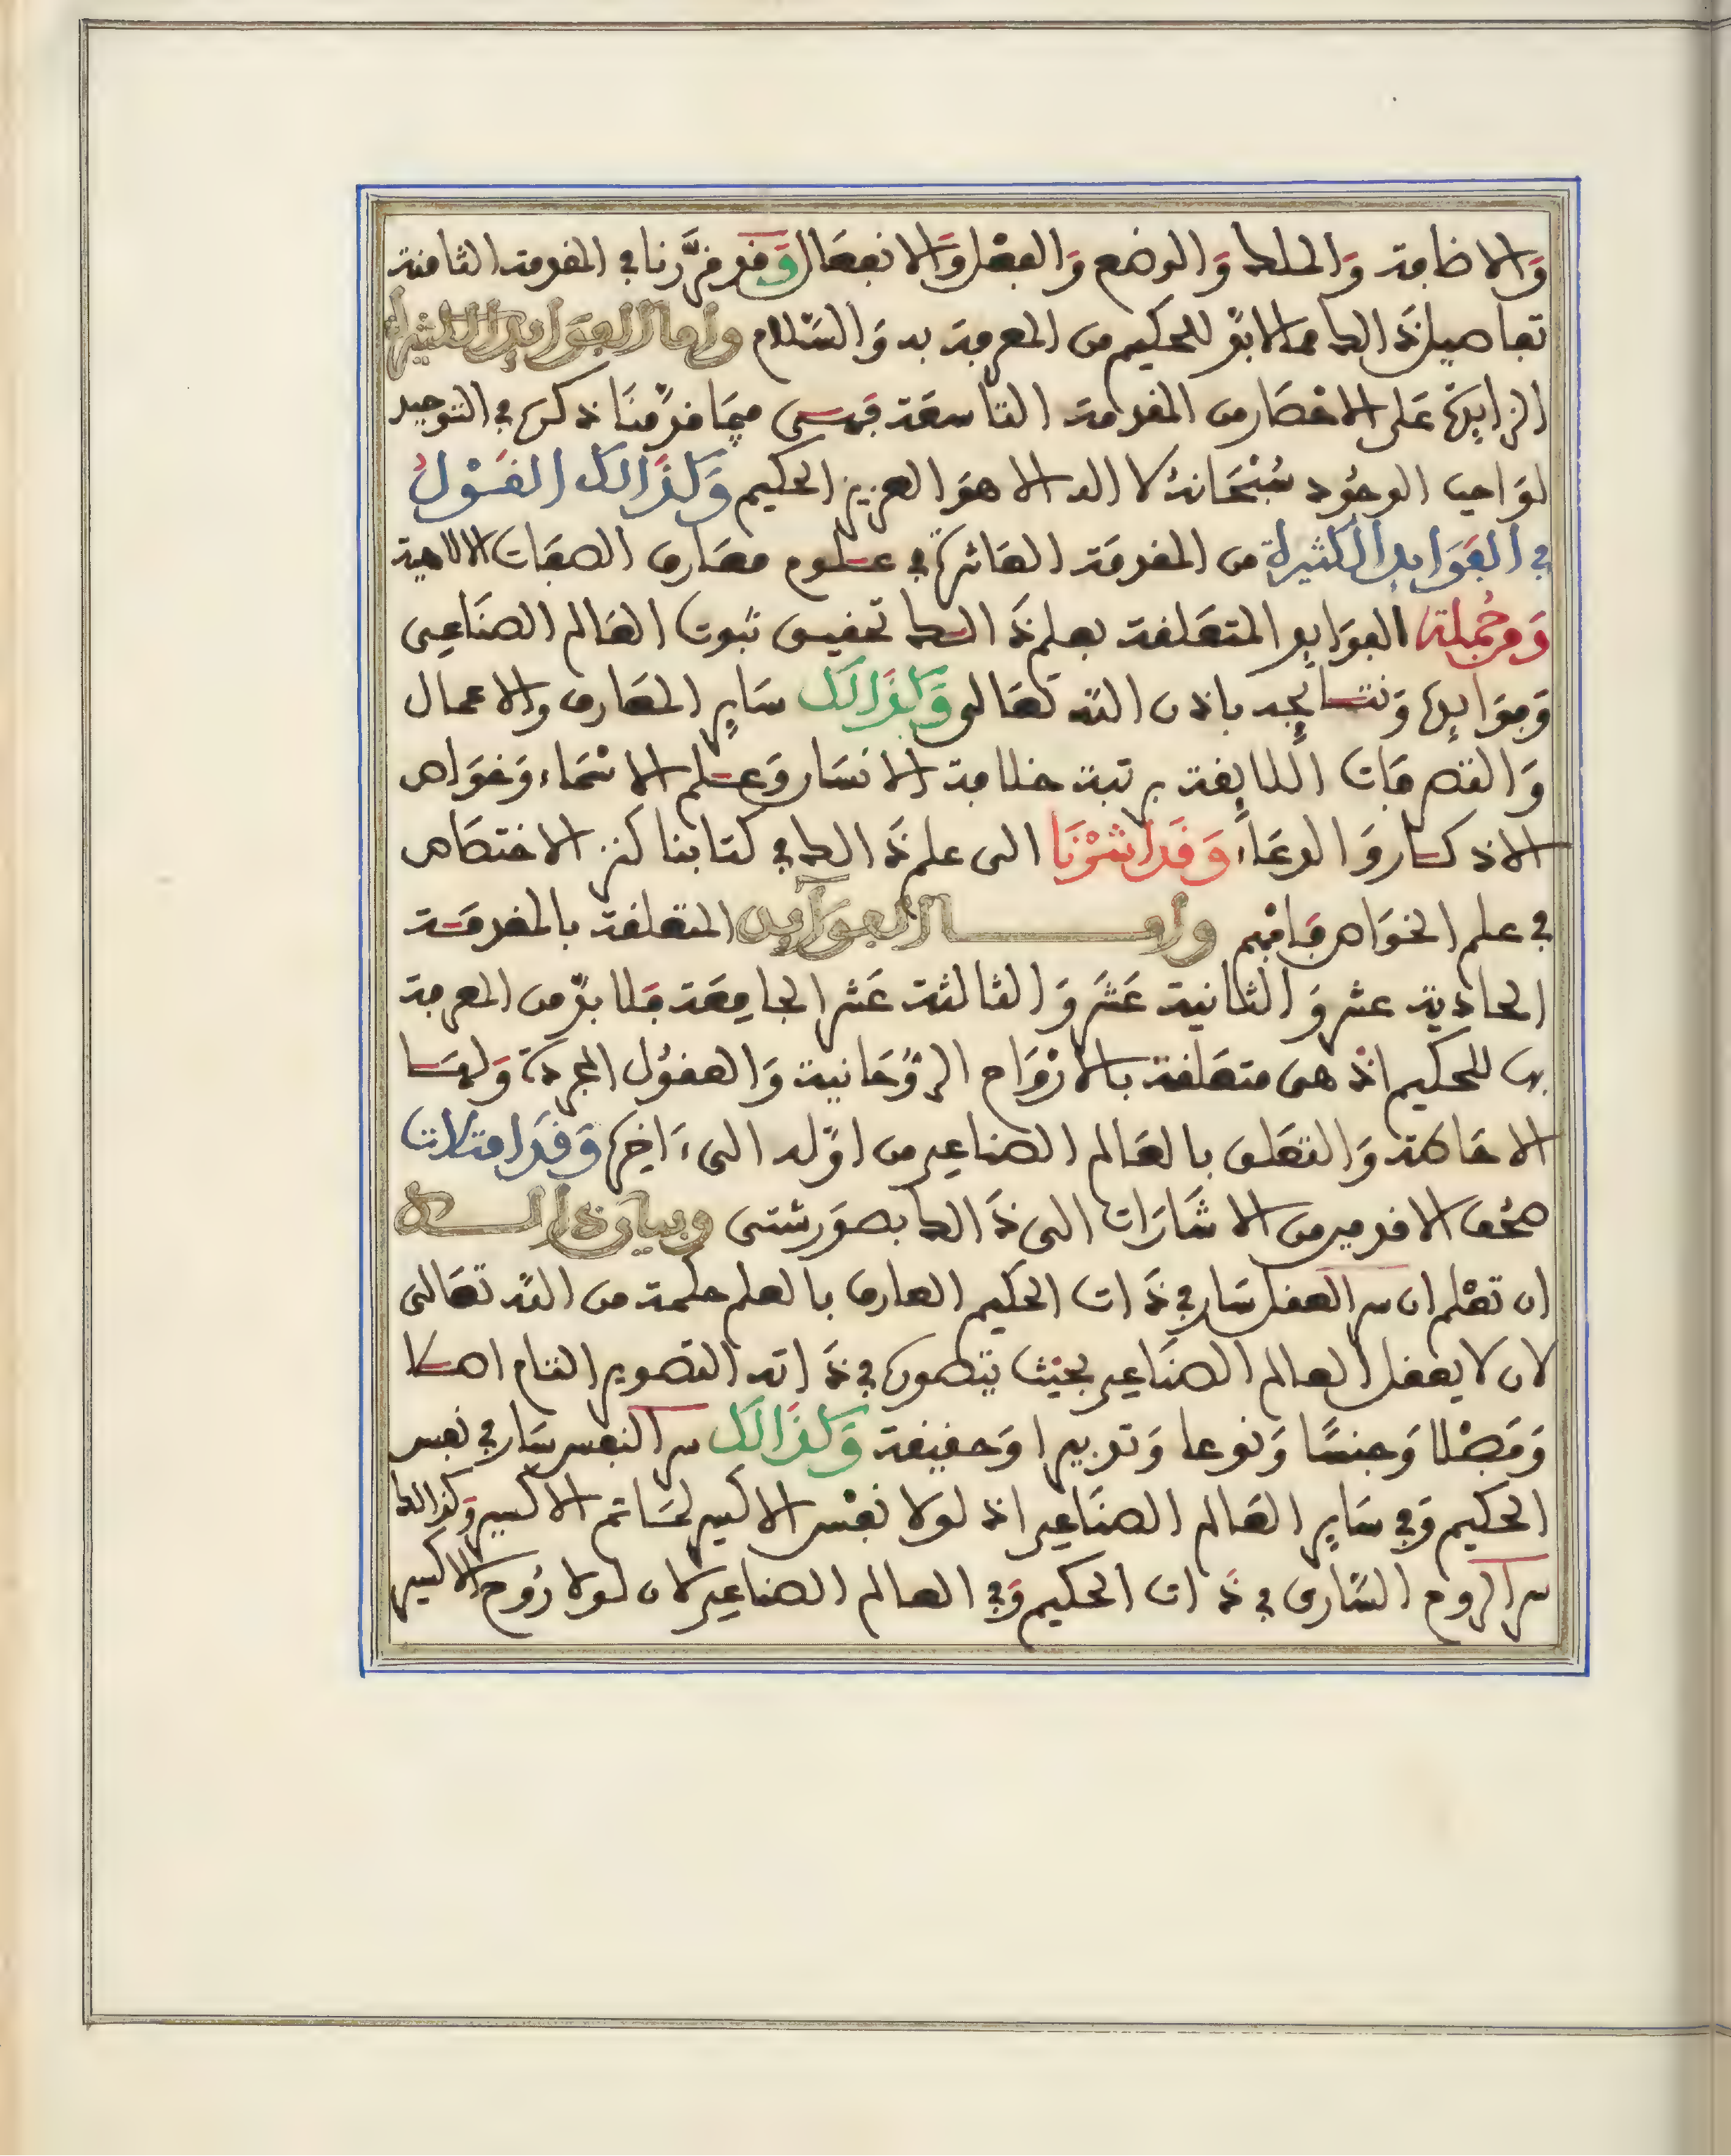 وَالاضافة وَالملك وَالوضع وَالفعْل وَالانفعَال وَقد قرَّرنا في المقدمة الثامنة
تفاصيل ذَالك مما لابدّ للحكيم من المعرفة به وَالسّلام وأما الفوَايد الكثيرة
الزايدة عَلى الاختصار من المقدمة التاسعَة فهـي فيمَا قدّمنَا ذكره في التوحيد
لوَاجب الوجُود سُبْحَانهُ لا اله الا هوَ العزيز الحكيم وَكذَالك القَوْلُ
في الفَوَايد الكثيرة من المقدمَة العَاشرة في علوم معَارف الصفَات الالاهية
وَمن جُملة الفوَايد المتعَلقة بعلم ذَالك تحقيق ثبوت العَالم الصنَاعِي
وَفوَايدها وَنتـايجه باذن اللّه تعَالى وَكذَالك سَاير المعَارف وَالاعمال
وَالتصرفَات اللايقة برتبة خلافة الانسَان وَعلم الاسْمَاء وَخوَاص
الاذكـار وَالدعَاء وَقَد اشَرْنَا الى علم ذَالك في كتابنا كنز الاختصَاص
في علم الخوَاص فافهم وأمــا الفوَآيد المتعلقة بالمقدمَـة
الحادية عشر وَالثانية عَشَر وَالثالثة عَشر الجامِعَة فلا بدّ من المعرفة
بها للحكيم اذْ هى متعَلقة بالارْوَاح الرّوُحَانية وَالعقوُل المجردة وَلهـَا
الاحَاطة وَالتعَلق بالعَالم الصناعي من اوّله الى ءَاخرها وَقَد امتلات
صُحُف الاقدمين من الاشَارَات الى ذَالك بصوَر شتى وبيان ذَالــك
ان تعْلم ان سر العقل سَار في ذَات الحكيم العارف بالعلم حكمة من اللّه تعَالى
لان لا يعقل العالم الصنَاعي بحيْث يتصوره في ذَاته التصوير التام اصـلا
وَفصْلا وَجنسًا وَنوعا وَتدبيرا وَحقيقة وَكذَالك سر النفس سَار في نفس
الحكيم وَفي سَاير العَالم الصنَاعي اذ لولا نفْس الاكسير لمَا تم الاكسير وَكذالك
سر الروح السّارى في ذَات الحكيم وَفي العالم الصناعي لان لولا رُوح الاكسير